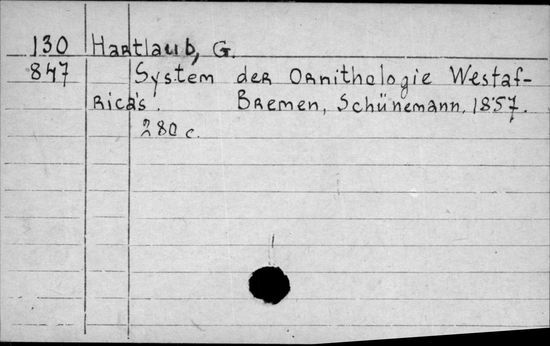 130 Hartlaub, G.
847 System der Ornithologie Westaf-
rica's. Bremen, Schünemann, 1857.
280 c.